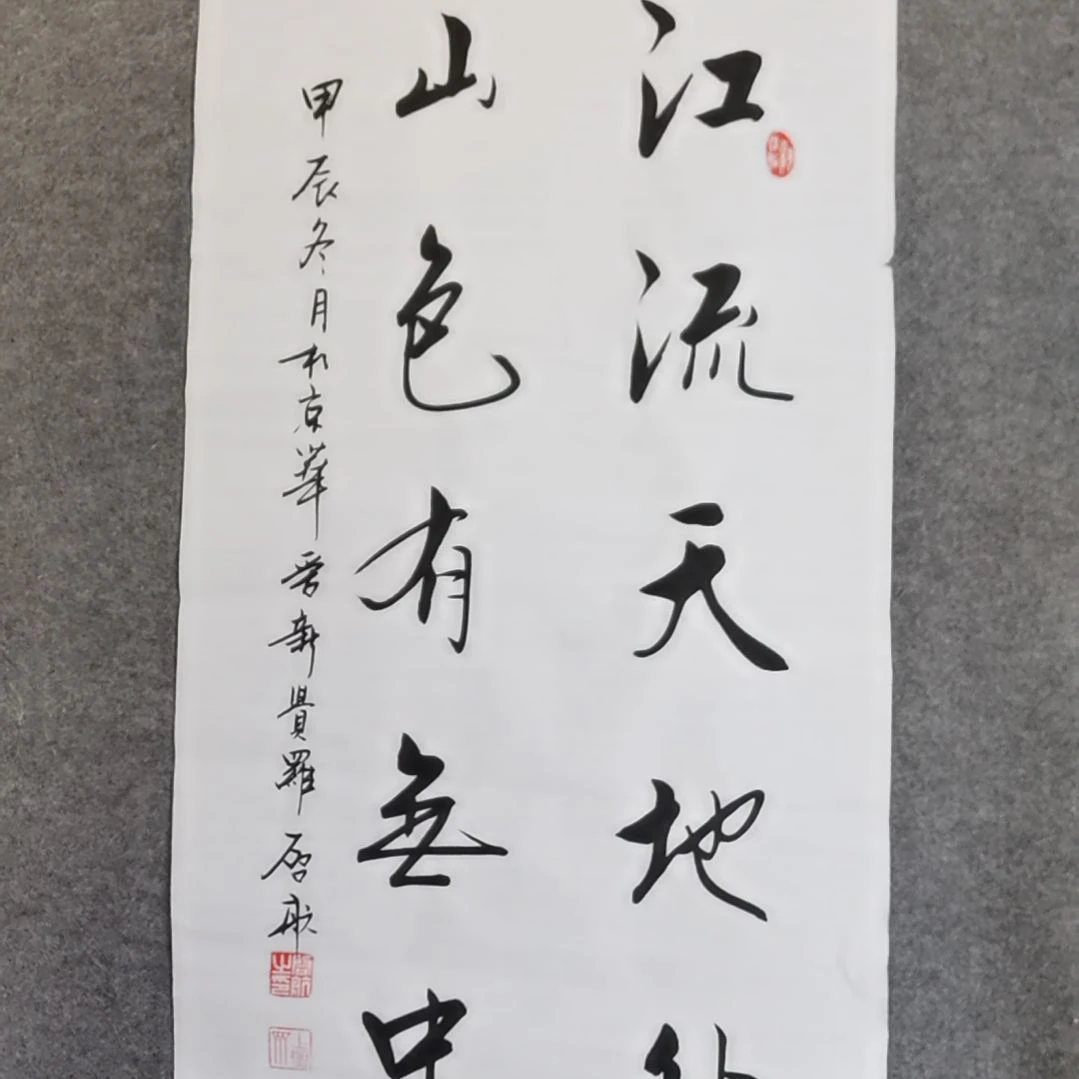 江流天地外
山色有無中
甲辰冬月於京華 愛新覺羅 啓航